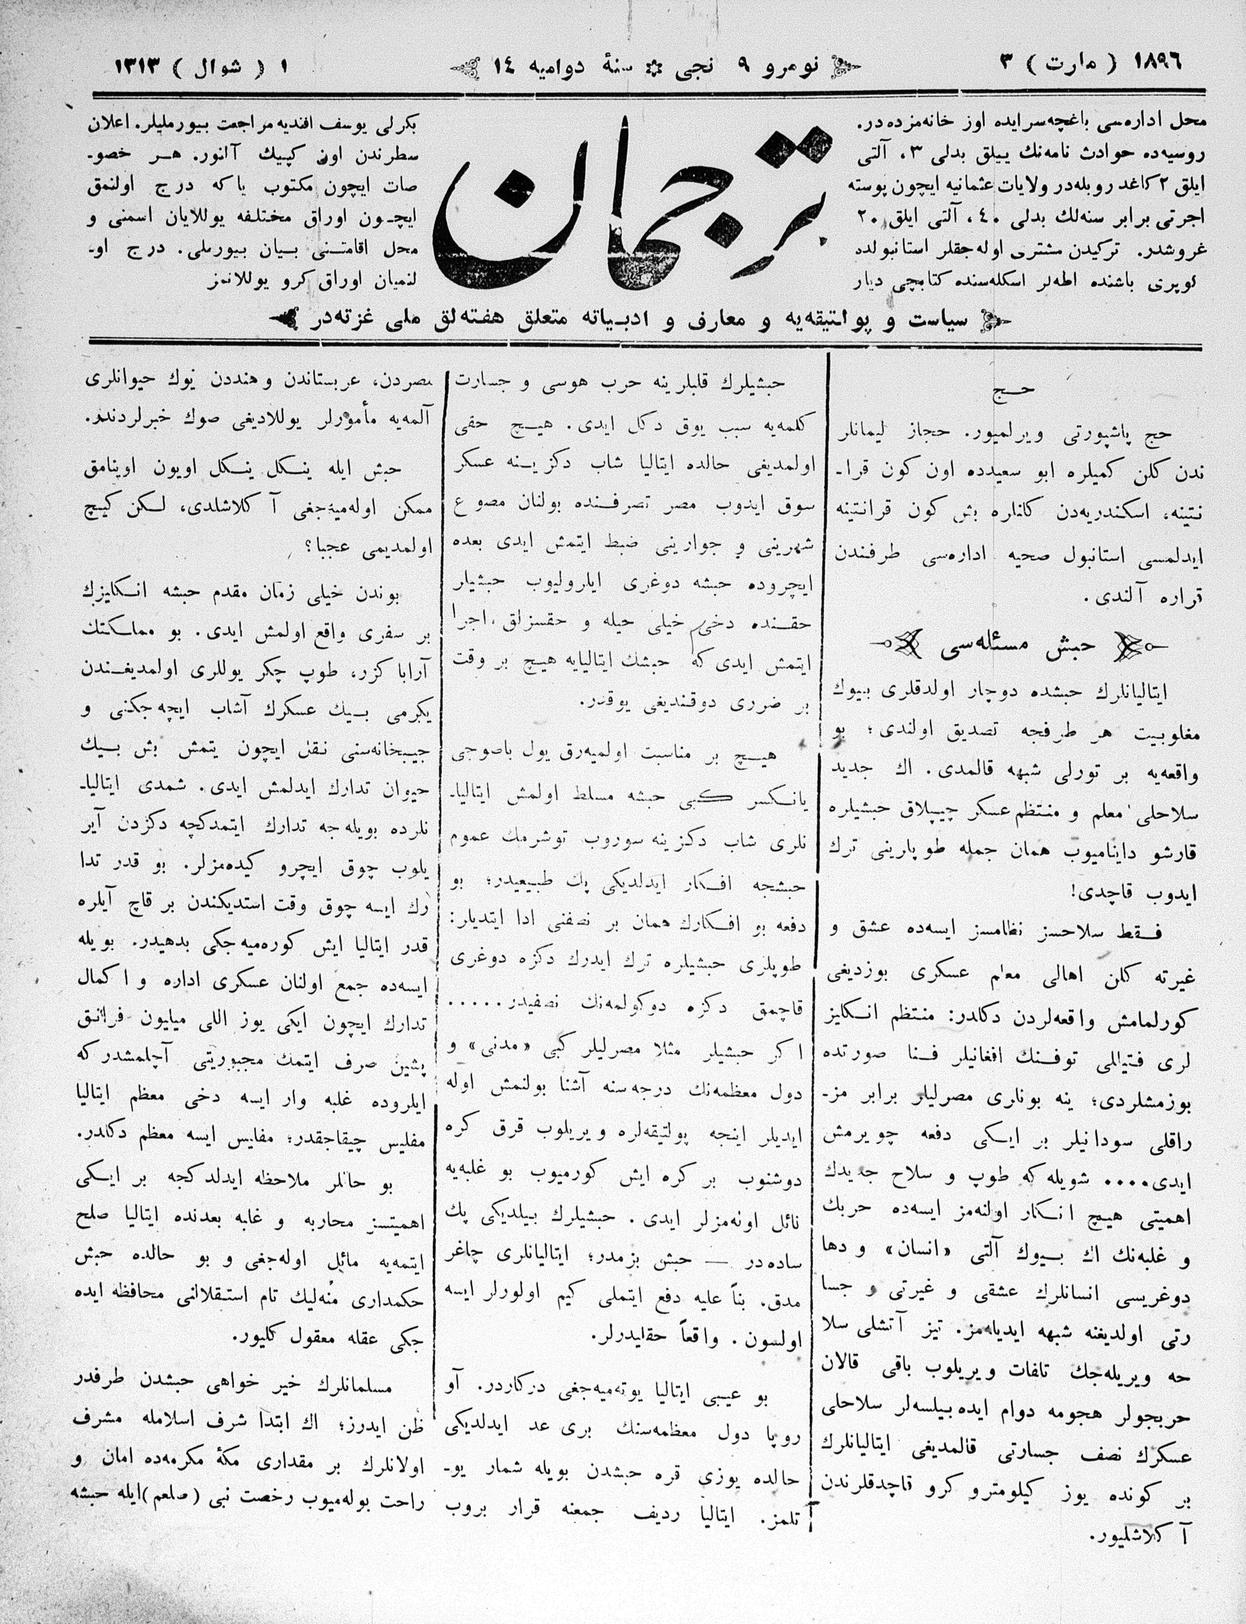 ١٨٩٦ ( مارت ) ٣
نومرو ٩ نجى ✽ سنهٔ دواميه ١٤
١ ( شوال ) ١٣١٣
محل اداره‌سى باغچه‌سرايده اوز خانه‌مزده‌در.
روسيه‌ده حوادث نامه‌نك ييللق بدلى ٣، آلتى
ايلق ٢ كاغد روبله‌در ولايات عثمانيه ايچون پوسته
اجرتى برابر سنه‌لك بدلى ٤٠، آلتى ايلق ٢٠
غروشدر. تركيدن مشترى اوله‌جقلر استانبولده
كوپرى باشنده اطه‌لر اسكله‌سنده كتابچى ديار
ترجمان
بكرلى يوسف افنديه مراجعت بيورمليلر. اعلان
سطرندن اون كپيك آلنور. هر خصوـ
صات ايچون مكتوب ياكه درج اولنمق
ايچون اوراق مختلفه يوللايان اسمنى و
محل اقامتنى بيان بيورملى. درج اوـ
لنميان اوراق كرو يوللانمز
سياست و پولتيقه‌يه و معارف و ادبياته متعلق هفته‌لق ملى غزته‌در
حج
حج پاشپورتى ويرلميور. حجاز ليمانلر
ندن كلن كميلره ابو سعيدده اون كون قراـ
نتينه، اسكندريه‌دن كلنلره بش كون قرانتينه
ايدلمسى استانبول صحيه اداره‌سى طرفندن
قراره آلندى.
حبش مسئله‌سى
ايتاليانلرك حبشده دوچار اولدقلرى بيوك
مغلوبيت هر طرفجه تصديق اولندى؛ بو
واقعه‌يه بر تورلى شبهه قالمدى. اك جديد
سلاحلى معلم و منتظم عسكر چيپلاق حبشيلره
قارشو دايناميوب همان جمله طوپارينى ترك
ايدوب قاچدى!
فقط سلاحسز نظامسز ايسه‌ده عشق و
غيرته كلن اهالى معلم عسكرى بوزديغى
كورلمامش واقعه‌لردن دكلدر: منتظم انكليز
لرى فتيللى توفنك افغانيلر فنا صورتده
بوزمشلردى؛ ينه بونلرى مصرليلر برابر مزـ
راقلى سودانيلر بر ايكى دفعه چويرمش
ايدى.... شويله‌كه طوپ و سلاح جديدك
اهميتى هيچ انكار اولنه‌مز ايسه‌ده حربك
و غلبه‌نك اك بيوك آلتى «انسان» و دها
دوغريسى انسانلرك عشقى و غيرتى و جسا
رتى اولديغنه شبهه ايديله‌مز. تيز آتشلى سلا
حه ويريله‌جك تلفات ويريلوب باقى قالان
حربجولر هجومه دوام ايده‌بيلسه‌لر سلاحلى
عسكرك نصف جسارتى قالمديغى ايتاليانلرك
بر كونده يوز كيلومترو كرو قاچدقلرندن
آكلاشليور.
حبشيلرك قلبلرينه حرب هوسى و جسارت
كلمه‌يه سبب يوق دكل ايدى. هيچ حقى
اولمديغى حالده ايتاليا شاب دكزينه عسكر
سوق ايدوب مصر تصرفنده بولنان مصوع
شهرينى و جوارينى ضبط ايتمش ايدى بعده
ايچروده حبشه دوغرى ايلروليوب حبشيلر
حقنده دخى خيلى حيله و حقسزلق، اجرا
ايتمش ايدى كه حبشك ايتاليايه هيچ بر وقت
بر ضررى دوقنديغى يوقدر.
هيچ بر مناسبت اولميه‌رق يول باصوجى
يانكسر كبى حبشه مسلط اولمش ايتالياـ
نلرى شاب دكزينه سوروب توشرمك عموم
حبشجه افكار ايدلديكى پك طبيعيدر؛ بو
دفعه بو افكارك همان بر نصفنى ادا ايتديلر:
طوپلرى حبشيلره ترك ايدرك دكزه دوغرى
قاچمق دكزه دوكولمه‌نك نصفيدر.....
اكر حبشيلر مثلا مصرليلر كبى «مدنى» و
دول معظمه‌نك درجه‌سنه آشنا بولنمش اوله
ايديلر اينجه پولتيقه‌لره ويريلوب قرق كره
دوشنوب بر كره ايش كورميوب بو غلبه‌يه
نائل اونه‌مزلر ايدى. حبشيلرك بيلديكى پك
ساده‌در — حبش بزمدر؛ ايتاليانلرى چاغر
مدق. بناً عليه دفع ايتملى كيم اولورلر ايسه
اولسون. واقعاً حقليدرلر.
بو عيبى ايتاليا يوته‌ميه‌جغى دركاردر. آو
روپا دول معظمه‌سنك برى عد ايدلديكى
حالده يوزى قره حبشدن بويله شمار يوـ
تلمز. ايتاليا رديف جمعنه قرار بروب
مصردن، عربستاندن و هنددن يوك حيوانلرى
آلمه‌يه مأمورلر يوللاديغى صوك خبرلردندر.
حبش ايله ينكل ينكل اويون اوينامق
ممكن اوله‌ميه‌جغى آكلاشلدى، لكن كيچ
اولمديمى عجبا؟
بوندن خيلى زمان مقدم حبشه انكليزك
بر سفرى واقع اولمش ايدى. بو مملكتك
آرابا كزر، طوپ چكر يوللرى اولمديغندن
يكرمى بيك عسكرك آشاب ايچه‌جكنى و
جيبخانه‌سنى نقل ايچون يتمش بش بيك
حيوان تدارك ايدلمش ايدى. شمدى ايتالياـ
نلرده بويله‌جه تدارك ايتمدكچه دكزدن آير
يلوب چوق ايچرو كيده‌مزلر. بو قدر تدا
رك ايسه چوق وقت استديكندن بر قاچ آيلره
قدر ايتاليا ايش كوره‌ميه‌جكى بديهيدر. بويله
ايسه‌ده جمع اولنان عسكرى اداره و اكمال
تدارك ايچون ايكى يوز اللى ميليون فرانق
پشين صرف ايتمك مجبوريتى آچلمشدر كه
ايلروده غلبه وار ايسه دخى معظم ايتاليا
مفليس چيقاجقدر؛ مفليس ايسه معظم دكلدر.
بو حالمر ملاحظه ايدلدكجه بر ايكى
اهميتسز محاربه و غلبه بعدنده ايتاليا صلح
ايتمه‌يه مائل اوله‌جغى و بو حالده حبش
حكمدارى منه‌ليك تام استقلالنى محافظه ايده
جكى عقله معقول كليور.
مسلمانلرك خير خواهى حبشدن طرفدر
ظن ايدرز؛ اك ابتدا شرف اسلامله مشرف
اولانلرك بر مقدارى مكهٔ مكرمه‌ده امان و
راحت بوله‌ميوب رخصت نبى (صلعم) ايله حبشه